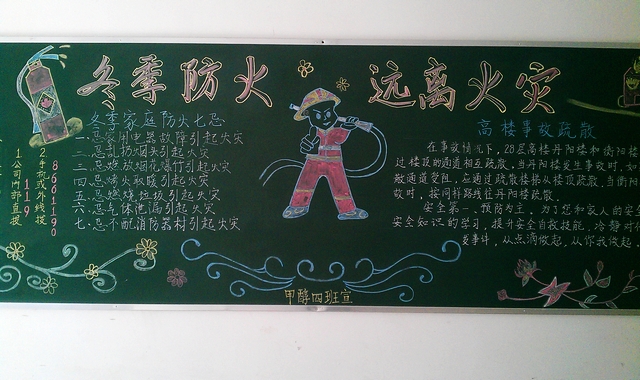 冬季防火 远离火灾
1公司内部直拨
119
2手机或外线拨
8661190
冬季家庭防火七忌
一.忌家用电器故障引起火灾
二.忌乱扔烟头引起火灾
三.忌燃放烟花爆竹引起火灾
四.忌烤火取暖引起火灾
五.忌燃烧垃圾引起火灾
六.忌气体泄漏引起火灾
七.忌不配消防器材引起火灾
高楼事故疏散
在事故情况下，28层高楼丹阳楼和衡阳楼
过楼顶的通道相互疏散，当丹阳楼发生事故时，如
散通道受阻，应通过疏散楼梯从楼顶疏散，当衡阳
故时，按同样路线往丹阳楼疏散。
安全第一，预防为主，为了您和家人的安全
安全知识的学习，提升安全自救技能，冷静对待
发事件，从点滴做起，从你我做起
甲醇四班宣